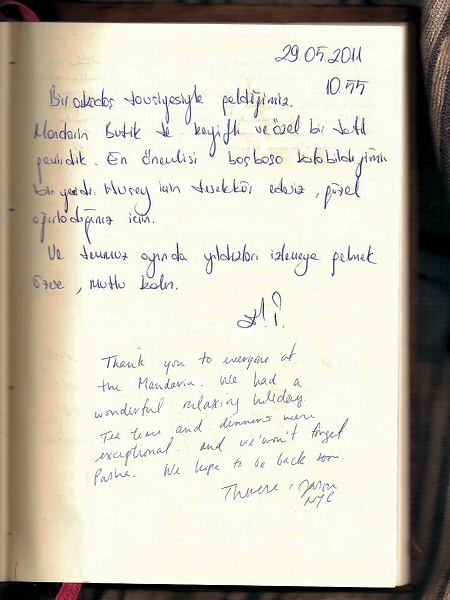 29.05.2011
10.55
Bir arkadaş tavsiyesiyle geldiğimiz.
Mandarin Butik te keyifli ve özel bir tatil
geçirdik. En önemlisi başbaşa kalabildiğimiz
bir yerdi. Hersey için tesekkür ederiz, güzel
ağırladığınız için.
Ve temmuz ayında yıldızları izlemeye gelmek
üzere, mutlu kalın.
Thank you to everyone at
the Mandarin. We had a
wonderful relaxing holiday.
Tea time and dinners were
exceptional. and we won't forget
Pasha. We hope to be back soon.
Therese, Jason
NYC